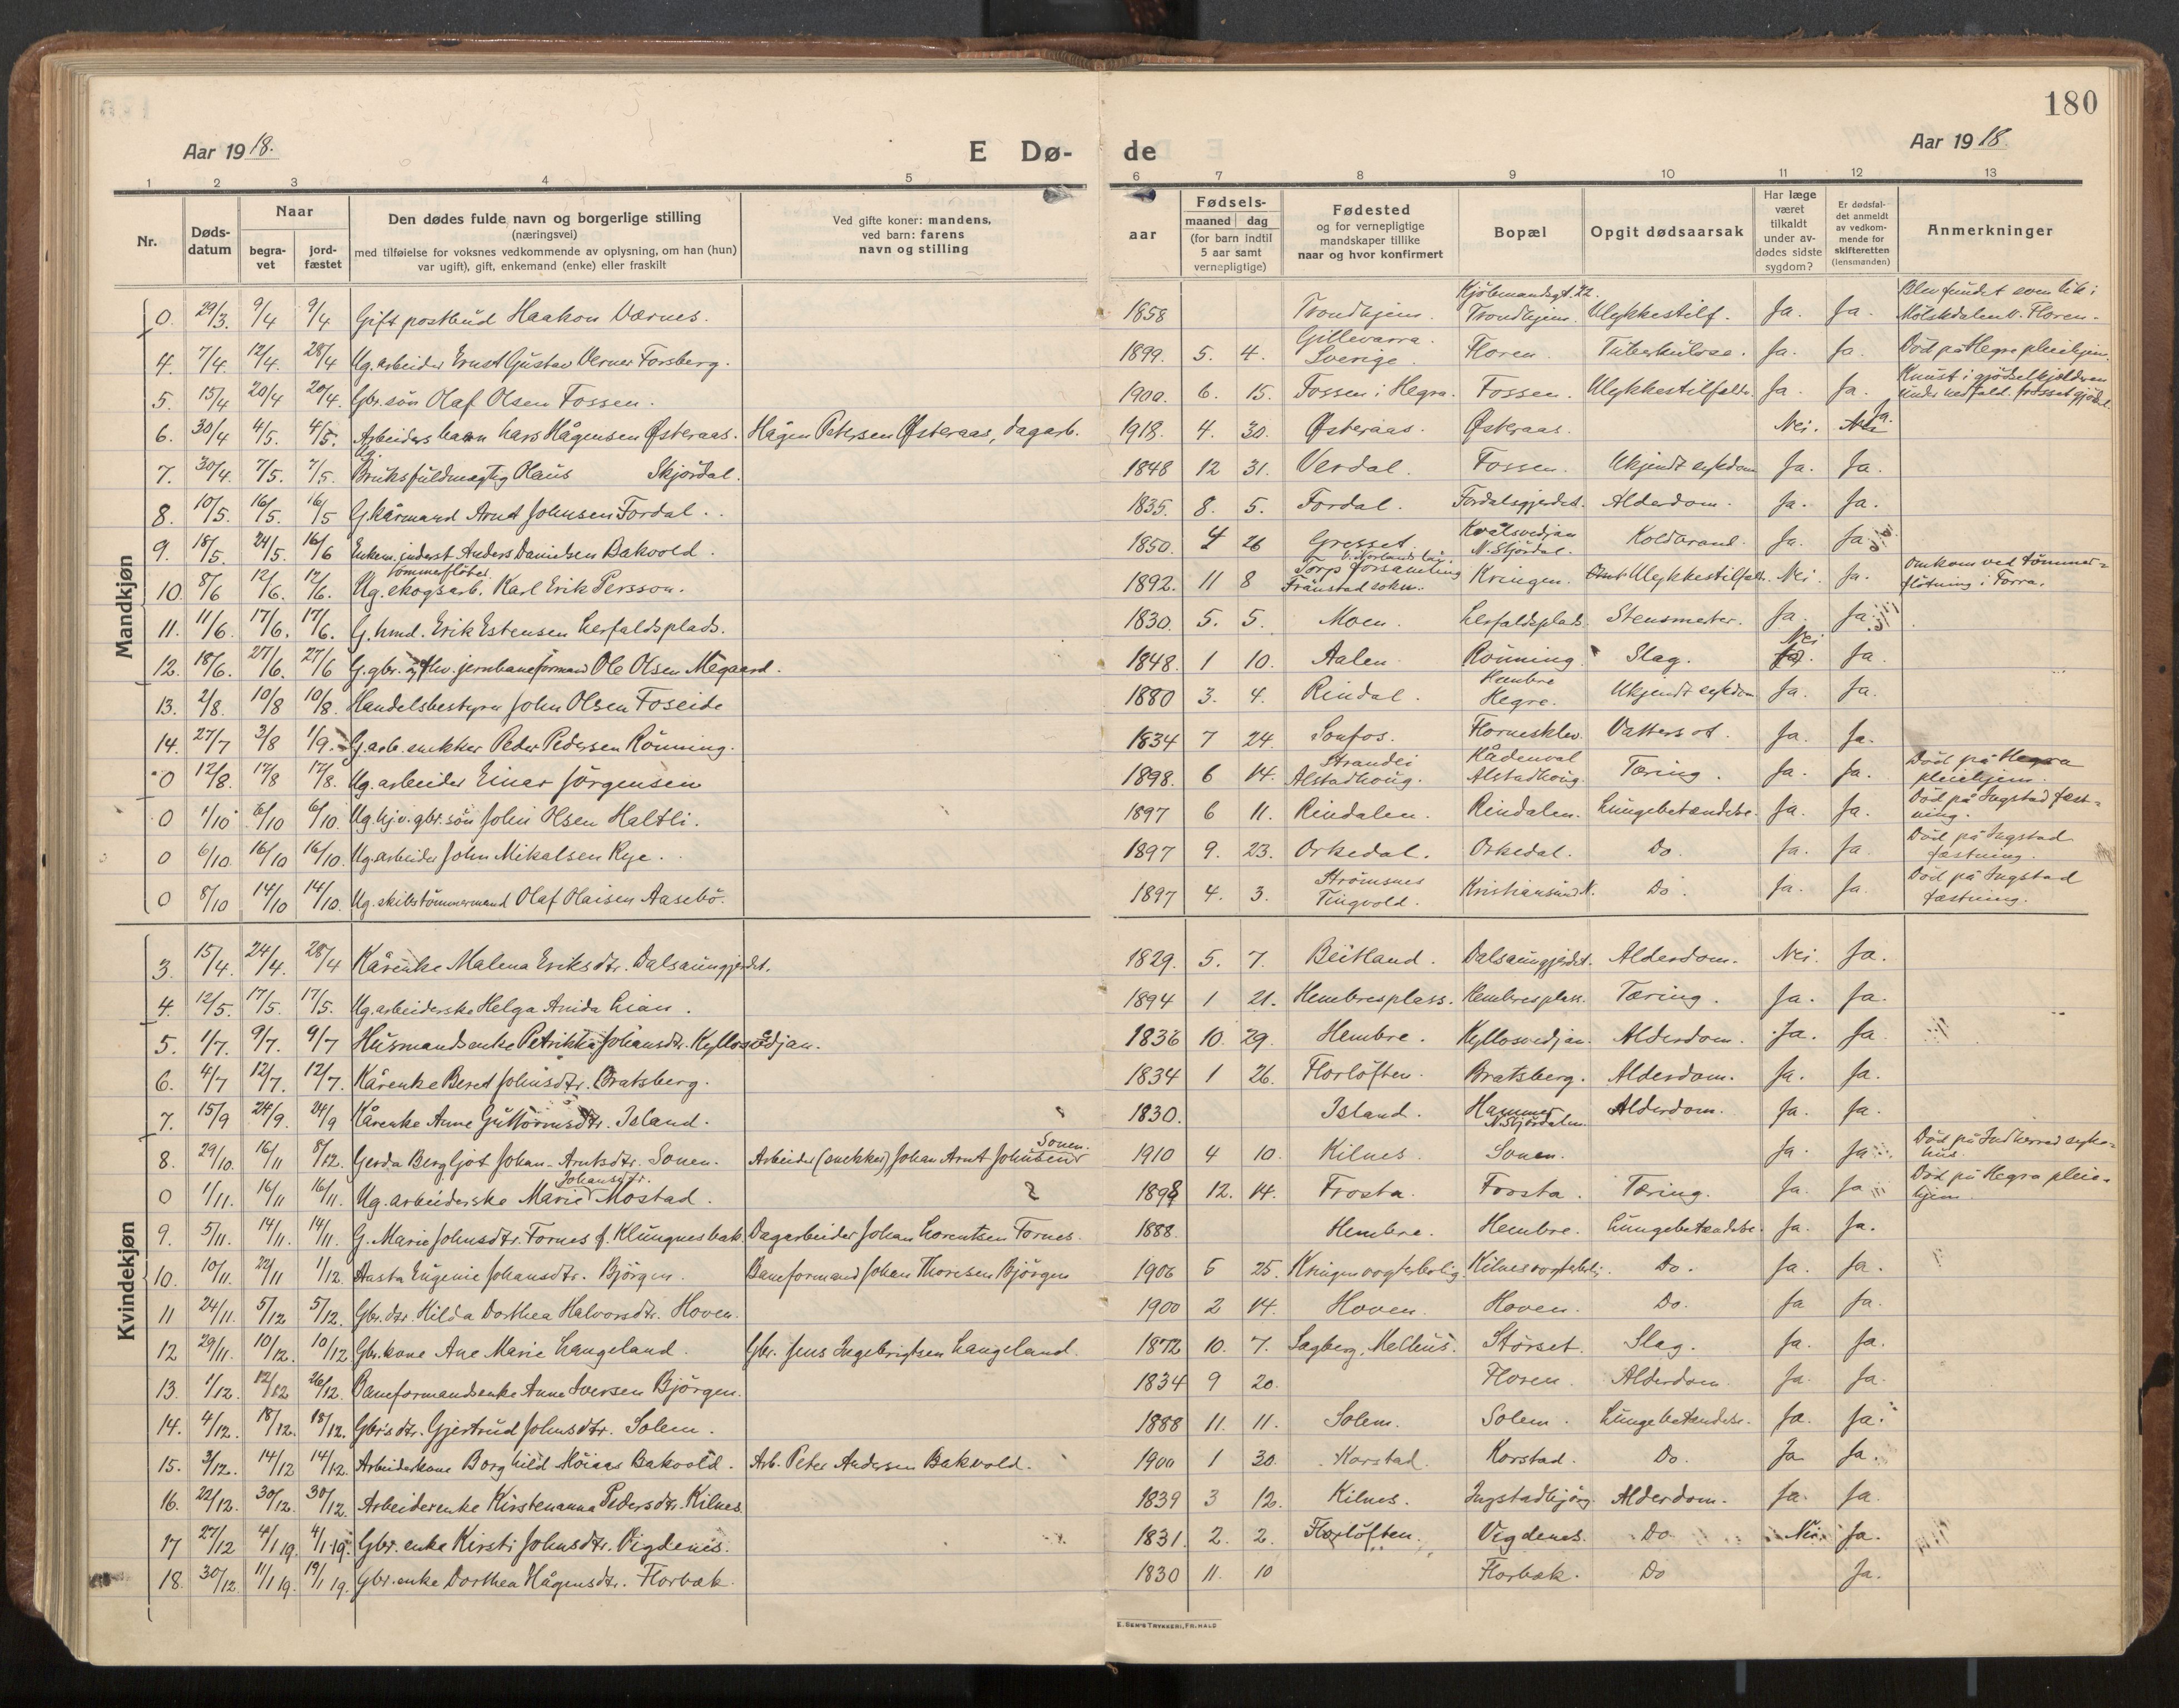 180
Aar 1918.
E Dø-
de
Aar 1918.
1 2 3 4 5 6 7 8 9 10 11 12 13
Nr.
Døds-
datum
Naar
begra-
vet
jord-
fæstet
Den dødes fulde navn og borgerlige stilling
(næringsvei)
med tilføielse for voksnes vedkommende av oplysning, om han (hun)
var ugift), gift, enkemand (enke) eller fraskilt
Ved gifte koner: mandens,
ved barn: farens
navn og stilling
aar
Fødsels-
maaned dag
(for barn indtil
5 aar samt
vernepligtige)
Fødested
og for vernepligtige
mandskaper tillike
naar og hvor konfirmert
Bopæl
Opgit dødsaarsak
Har læge
været
tilkaldt
under av-
dødes sidste
sygdom?
Er dødsfal-
det anmeldt
av vedkom-
mende for
skifteretten
(lensmanden)
Anmerkninger
Mandkjøn
0. 29/3. 9/4 9/4 Gift postbud Haakon Værnes. 1858 Trondhjem. Kjöbmandsgt. 22. Trondhjem. Ulykkestilf. Ja. Ja. Blev fundet som lik i Mölskdalen v. Floren.
4. 7/4. 12/4. 28/4 Ug. arbeider Ernst Gustav Verner Forsberg. 1899. 5. 4. Gillevarra. Sverige. Floren. Tuberkulose. Ja. Ja. Död på Hegra pleiehjem.
5. 15/4 20/4 20/4. Gbr. sön Olaf Olsen Fossen. 1900. 6. 15. Fossen i Hegra. Fossen. Ulykkestilfælde. Ja. Ja. Knust i gjödselkjelderen under nedfald. frosset gjödsel.
6. 30/4 4/5. 4/5. Arbeiders barn Lars Hågensen Østeraas. Hågen Petersen Østeraas, dagarb. 1918. 4. 30. Østeraas. Østeraas. Nei. Ja.
7. 30/4. 7/5. 7/5. Ug. Bruksfuldmægtig Olaus Skjördal. 1848 12 31. Verdal. Fossen. Ukjendt sykdom Ja. Ja.
8. 10/5. 16/5. 16/5 G. kårmand Arnt Johnsen Fordal. 1835. 8. 5. Fordal. Fordalsgjerdet. Alderdom. Ja. Ja.
9. 18/5. 24/5. 16/6 Enkem. inderst Anders Danielsen Bakvold. 1850. 4 26 Gresset. Kvålsvedjan N. Stjördal. Koldbrand. Ja. Ja.
10. 8/6 12/6. 12/6. Ug. skogsarb. tömmerflöter Karl Erik Persson. 1892. 11 8 Torps församling Fränstad sokn. Kringen. Ulykkestilfælde. Nei. Ja. Omkom ved tömmer-flötning i Forra.
11. 11/6. 17/6. 17/6. G. hmd. Erik Estensen Lerfaldsplads. 1830. 5. 5. Moen. Lerfaldsplads. Stensmerter. Ja. Ja.
12. 18/6. 27/6. 27/6 G. gbr. og fhv. jernbaneformand Ole Olsen Megaard. 1848. 1 10. Aalen. Rönning. Slag. Nei. Ja.
13. 2/8. 10/8 10/8. Handelsbestyrer John Olsen Foseide 1880 3. 4. Rindal. Hembre Hegra. Ukjendt sykdom Ja. Ja.
14. 27/7 3/8 1/9. G. arb. snekker Peder Pedersen Rönning. 1834 7 24. Sonfos. Flornesklev. Vattersot. Ja. Ja.
0 12/8. 17/8 17/8. Ug. arbeider Einar Jörgensen 1898. 6 14. Strandli Alstadhoug. Rådenval Alstadhoug. Tæring. Ja. Ja. Död på Hegra pleiehjem.
0 1/10. 6/10 6/10. Ug. hjv. gbr. sön John Olsen Haltli. 1897 6 11. Rindalen. Rindalen. Lungebetændelse. Ja. Ja. Död på Ingstad fæst-ning.
0 6/10 16/10 16/10. Ug. arbeider John Mikalsen Rye. 1897 9. 23. Orkedal. Orkedal. Do. Ja. Ja. Död på Ingstad fæstning.
0 8/10 14/10 14/10. Ug. skibstömmermand Olaf Olaisen Aasebö. 1897 4. 3. Strömsnes Tingvold. Kristiansund N. Do. Ja. Ja. Död på Ingstad fæstning.
Kvindekjøn
3. 15/4. 24/4. 28/4 Kårenke Malena Eriksdtr. Dalsaunegjerdet. 1829. 5. 7. Beitland. Dalsaunegjerdet. Alderdom. Nei. Ja.
4. 12/5. 17/5. 17/5. Ug. arbeiderske Helga Anida Lian. 1894 1 21. Hembresplass. Hembresplass. Tæring. Ja. Ja.
5. 1/7. 9/7. 9/7 Husmandsenke Petrikka Johansdtr. Kyllosvedjan. 1836 10. 29. Hembre. Kyllosvedjan. Alderdom. Ja. Ja.
6. 4/7 12/7. 12/7. Kårenke Beret Johnsdtr. Bratsberg. 1834 1 26. Florlöften. Bratsberg. Alderdom. Ja. Ja.
7. 15/9 24/9. 24/9 Kårenke Anne Guttormsdtr. Island. 1830. Island. Hammer N. Stjördalen. Alderdom. Ja. Ja.
8. 29/10. 16/11 8/12. Gerda Bergljot Johan-Arntsdtr. Sonen. Arbeider (snekker) Johan Arnt Johnsen Sonen. 1910 4 10. Kilnes. Sonen. Ja. Ja. Död på Indherred syke-hus.
0 1/11. 16/11 16/11. Ug. arbeiderske Marie Johansdtr. Mostad. 1898 12. 14. Frosta. Frosta. Tæring. Ja. Ja Död på Hegra pleie-hjem
9. 5/11. 14/11. 14/11. G. Marie Johnsdtr. Fornes f. Klungnesbak. Dagarbeider Johan Lorentsen Fornes. 1888. Hembre. Hembre. Lungebetændelse. Ja. Ja.
10. 10/11. 22/11 1/12. Aasta Eugenie Johansdtr. Björgen. Baneformand Johan Thoresen Björgen 1906 5 25. Kringen vogterbolig. Kilnes vogterbolig. Do. Ja. Ja.
11 24/11. 5/12 5/12. Gbr. dtr. Hilda Dorthea Halvorsdtr. Hoven. 1900 2 14. Hoven. Hoven. Do. Ja Ja.
12 29/11. 10/12. 10/12 Gbr. kone Ane Marie Langeland. Gbr. Jens Ingebrigtsen Langeland. 1872 10. 7. Sagberg, Melhus. Störset. Slag. Ja. Ja.
13. 1/12. 12/12 26/12. Baneformandsenke Anne Iversen Björgen. 1834 9 20. Floren. Alderdom. Ja. Ja.
14. 4/12. 18/12. 18/12. Gbr's dtr. Gjertrud Johnsdtr. Solem. 1888 11. 11. Solem. Solem. Lungebetændelse. Ja. Ja.
15. 3/12. 14/12 14/12. Arbeiderkone Borghild Moiaas Bakvold. Arb. Peter Andersen Bakvold. 1900 1 30. Korstad. Korstad. Do. Ja Ja.
16. 22/12. 30/12. 30/12. Arbeiderenke Kirstenanna Pedersdtr. Kilnes 1839 3 12. Kilnes. Ingstadbjörg. Alderdom. Ja. Ja.
17 27/12 4/1 19. 4/1 19. Gbr. enke Kirsti Johnsdtr. Vigdenes. 1831. 2. 2. Florlöften. Vigdenes. Do Nei. Ja.
18. 30/12. 11/1 19. 19/1 19. Gbr. enke Dorthea Hågensdtr. Florbak. 1830 11. 10 Florbak. Do Ja.
E. SEM'S TRYKKERI, FR.HALD